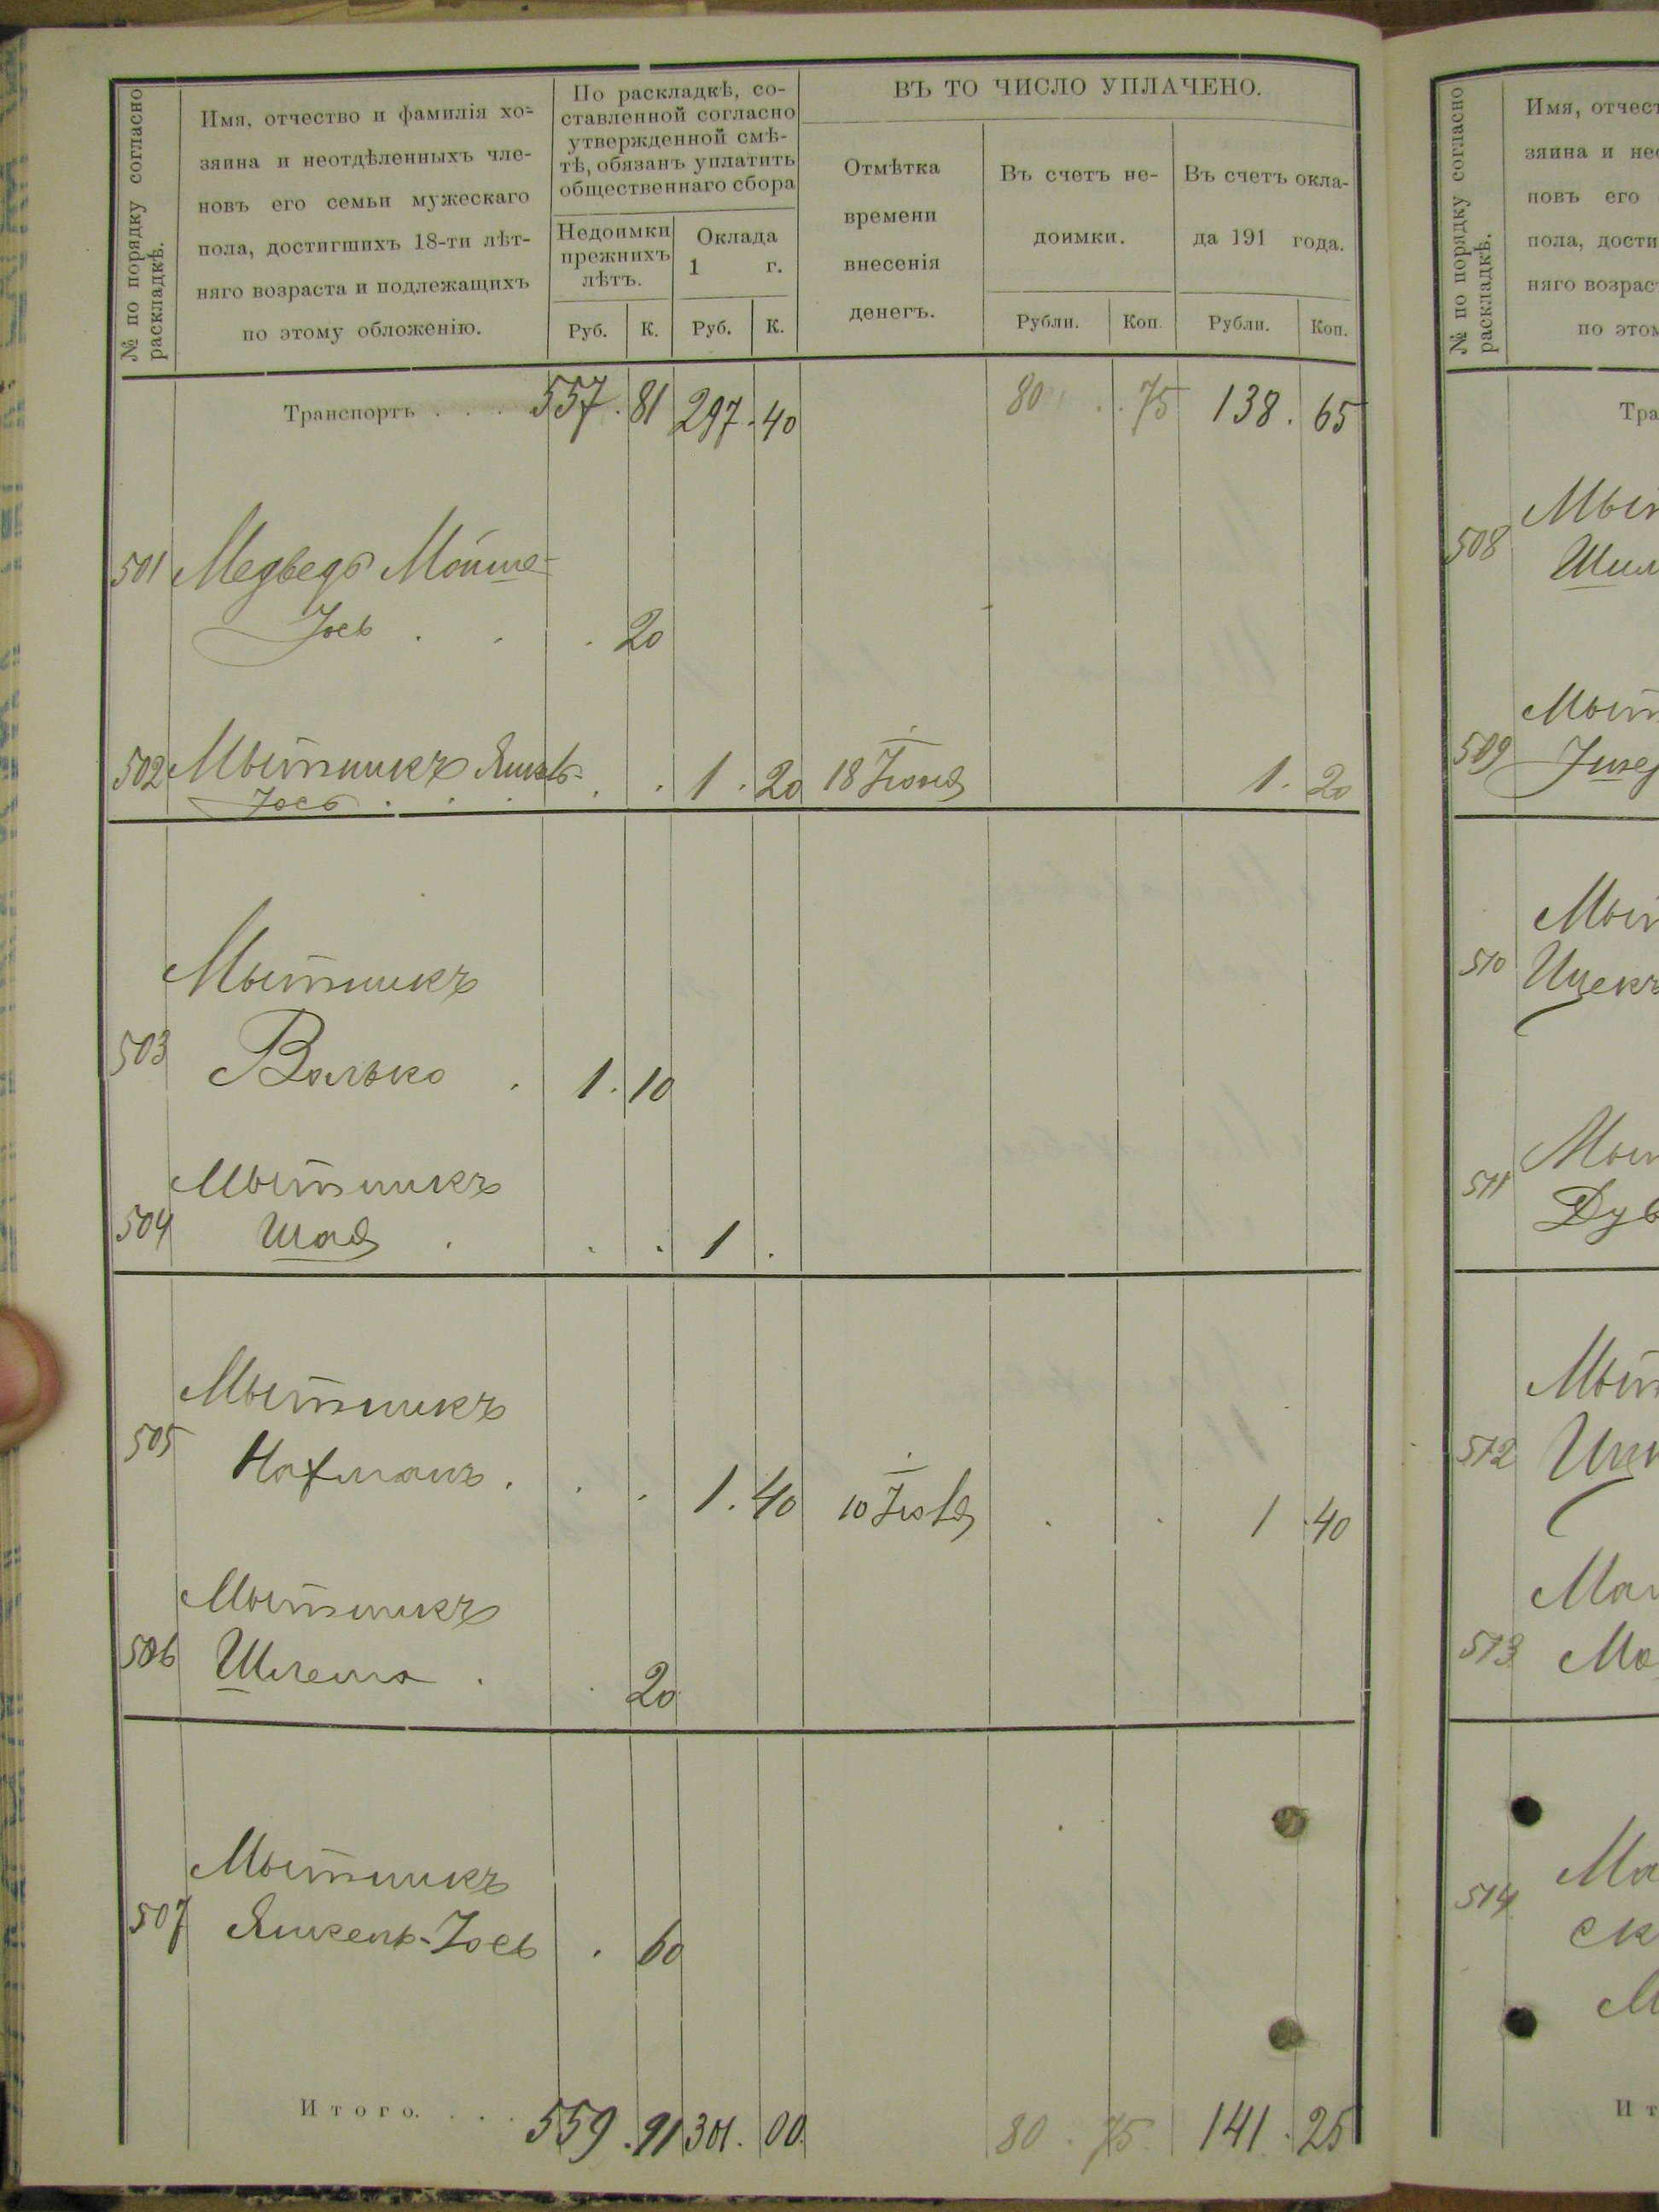 № по порядку согласно
раскладкѣ.
Имя, отчество и фамилія хо-
зяина и неотдѣленныхъ чле-
новъ его семьи мужескаго
пола, достигшихъ 18-ти лѣт-
няго возраста и подлежащихъ
по этому обложенію.
По раскладкѣ, со-
ставленной согласно
утвержденной смѣ-
тѣ, обязанъ уплатить
общественнаго сбора
Недоимки
прежнихъ
лѣтъ.
Оклада
1 г.
Руб. К. Руб. К.
ВЪ ТО ЧИСЛО УПЛАЧЕНО.
Отмѣтка
времени
внесенія
денегъ.
Въ счетъ не-
доимки.
Рубли. Коп.
Въ счетъ окла-
да 191 года.
Рубли. Коп.
Транспортъ . . . 557. 81 297. 40 80 . 75 138. 65
501 Медведь Мойше-
Іось . . . 20
502 Мытникъ Янкель-
Іось . . . 1. 20 18 Іюня 1. 20
Мытникъ
503 Волько . 1. 10
Мытникъ
504 Шая . . . 1 .
Мытникъ
505 Нафманъ . . . 1. 40 10 Іюля . . 1 .40
Мытникъ
506 Шлема . . 20
Мытникъ
507 Янкель-Іось . 60
Итого. . . . 559. 91 301. 00. 80 . 75. 141. 25
№ по порядку согласно
раскладкѣ.
Имя, отчест
зяина и не
новъ его
пола, дости
няго возрас
по этом
Тра
508
509
510 Ицекъ
511
512
513
514
И т